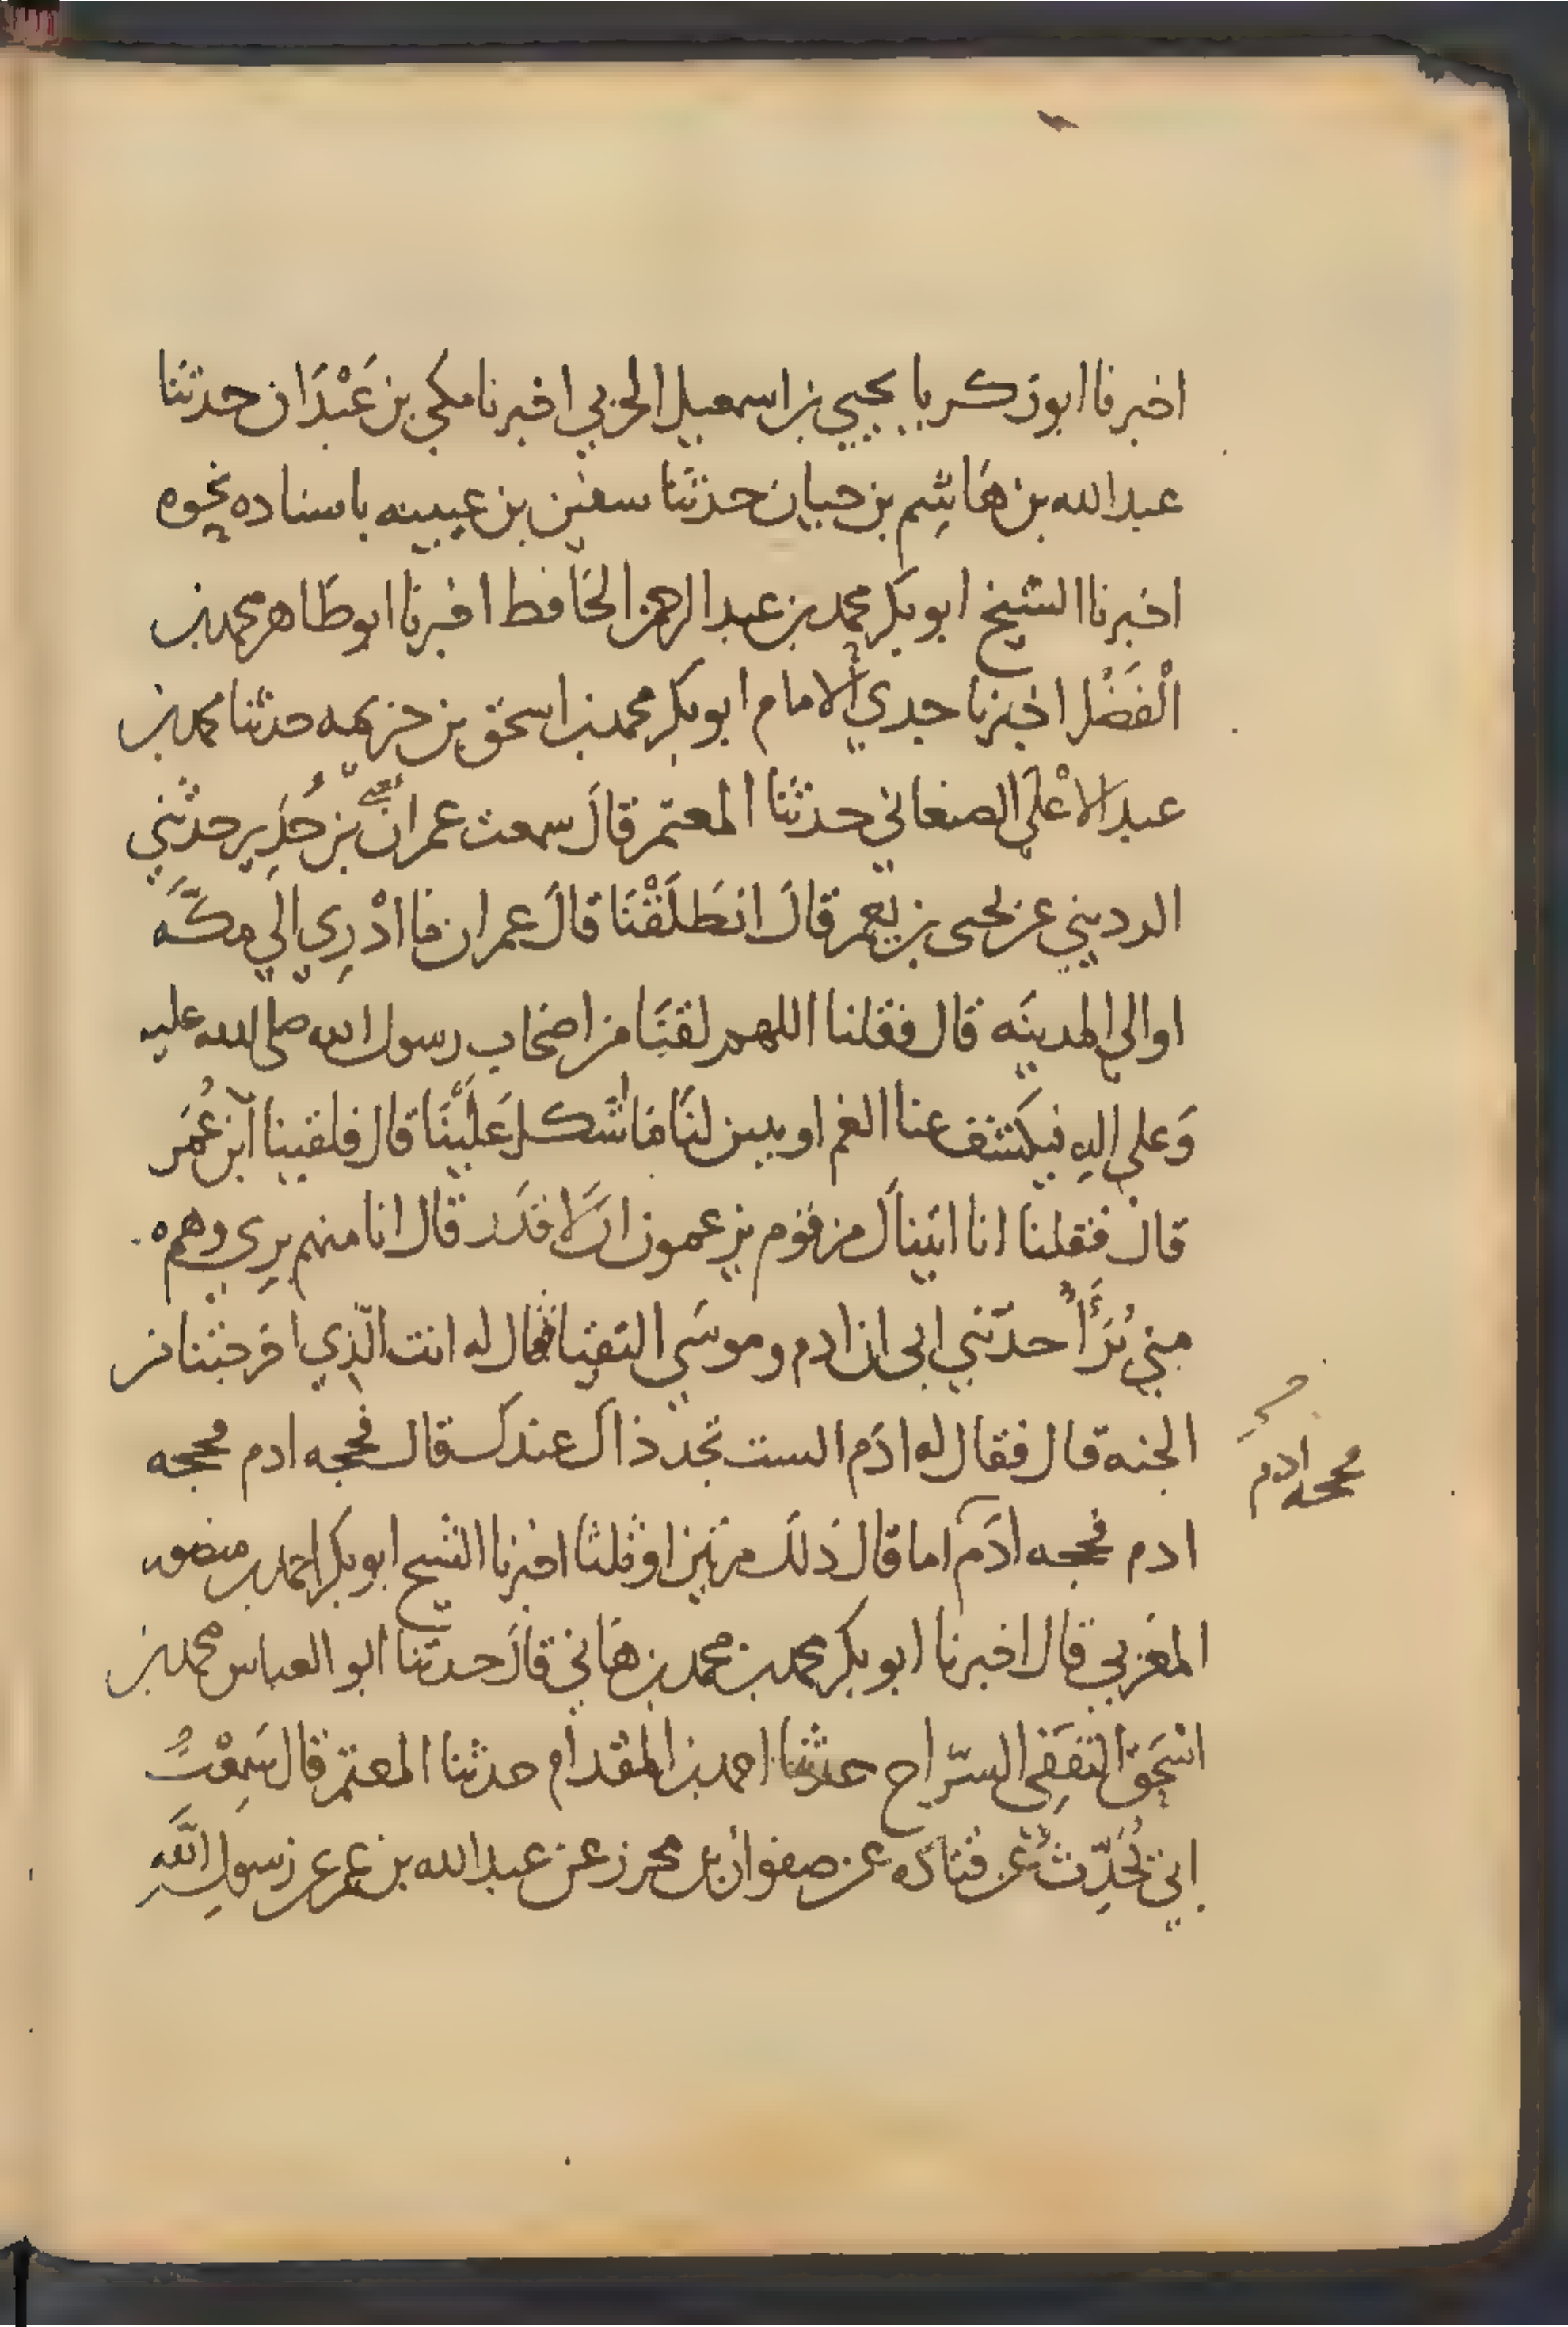 اخبرنا ابو زكريا يحيي بن اسمعيل الحربي اخبرنا مكي بن عَبْدَان حدثنا
عبد الله بن هَاشِم بن حيان حدثنا سفين بن عيينه باسناده نحوه
اخبرنا الشيخ ابو بكر محمد بن عبد الرحمن الحَافظ اخبرنا ابو طَاهر محمد بن
الْفَضْل اخبرنا جدي الامام ابو بكر محمد بن اسحق بن خزيمه حدثنا محمد بن
عبد الاعْلَي الصنعاني حدثنا المعتمر قالَ سمعت عمران بن حُدَير حدثني
الرديني عن يحيى بن يعمر قالَ انطَلَقْنَا قالَ عمران ما ادْرِي الي مكَّه
او الي المدينَه قال فقلنا اللهم لقنَا من اصحَاب رسول الله صلى الله عليه
وَعلي الهِ فيكشف عنا الغم او يبين لنَا مَا اشكل عَلَيْنَا قال فلقينا ابن عُمَر
قال فقلنا انا اتيناك من قوم يزعمون ان لَا قدَر قال انا منهم بري وهم
مني بُرَأَاً حدّثني ابى ان ادم وموسَي التقيا فقال له انت الّذي اخرجتنا من
الجنه قال فقال له ادَم الست تجد ذاك عندك قال فحجه ادم فحجه
ادم فحجه ادَم اما قال ذلك مرتين او ثلثا اخبرنا الشيخ ابو بكر احمد بن منصور
محححه ادم
المغربي قال اخبرنا ابو بكر محمد بن محمد بن هَاني قالَ حدثنا ابو العباس محمد بن
اسْحَق الثقَفِي السّراج حدثنا احمد بن المقدام حدثنا المعتمر قال سَمِعْتُ
ابي يُحَدّثُ عَن قتادَه عن صفوان بن محرز عن عبد الله بن عمر عن رَسولِ اللَّهِ